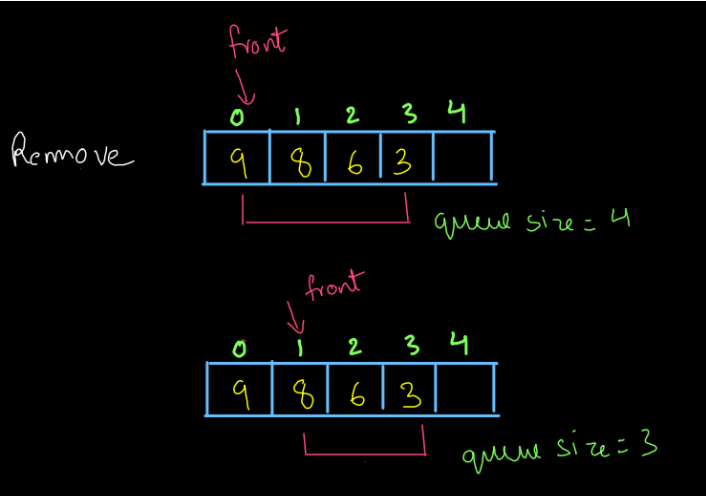 front
0 1 2 3 4
Remove 9 8 6 3
queue size = 4
front
0 1 2 3 4
9 8 6 3
queue size = 3